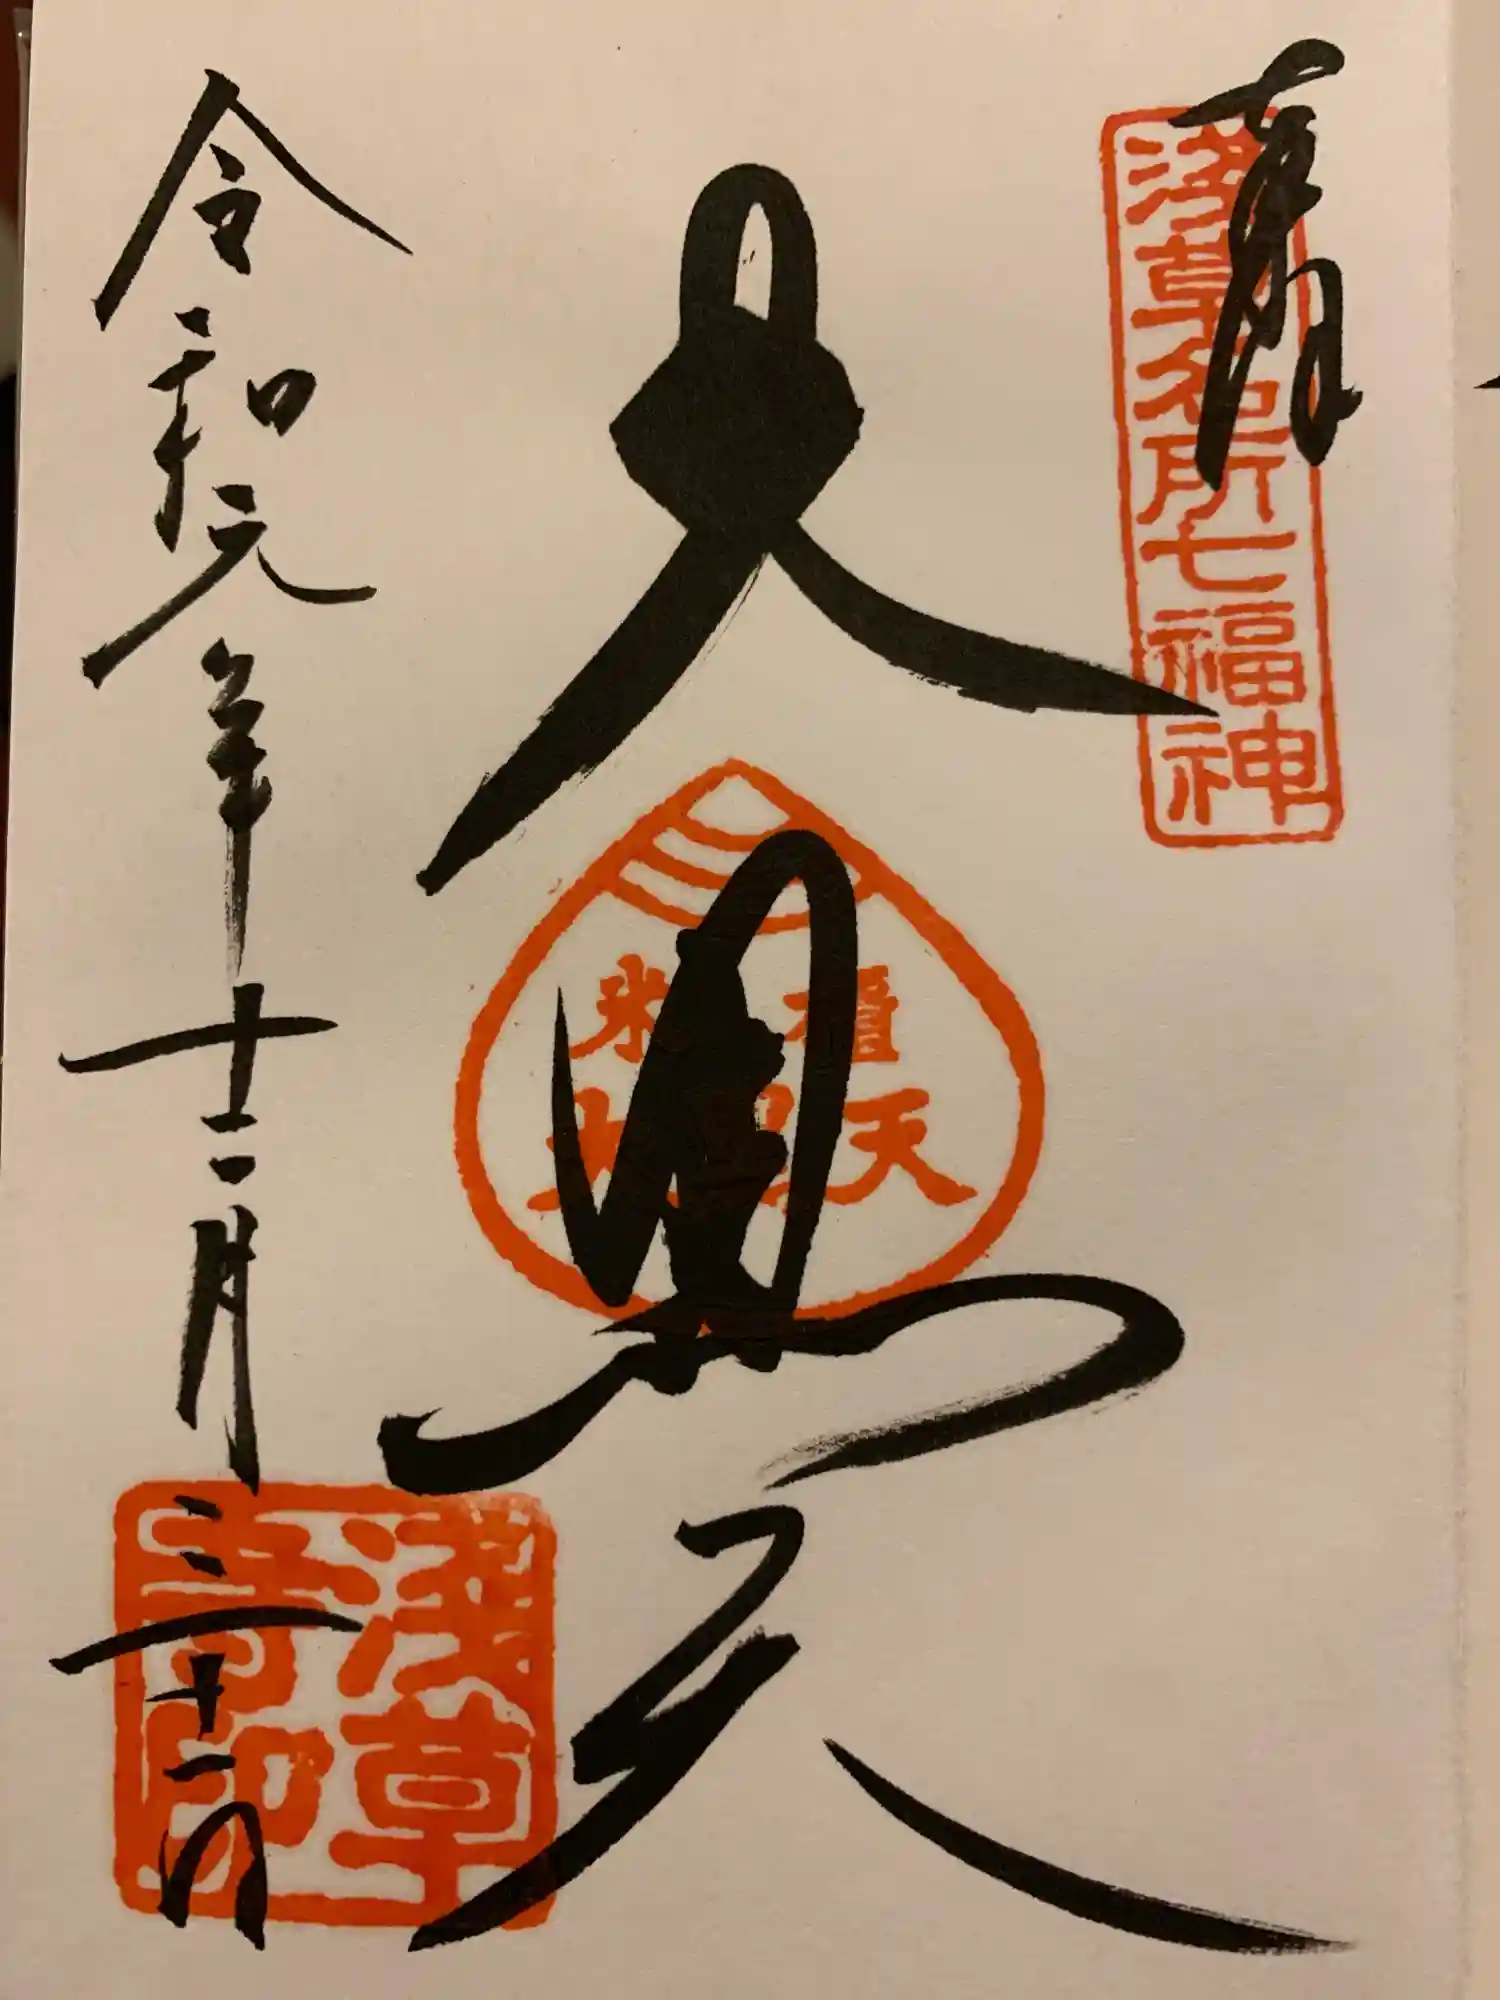 奉拝
浅草名所七福神
大黒天
米櫃
大黒天
令和元年十二月三十一日
淺草
寺印